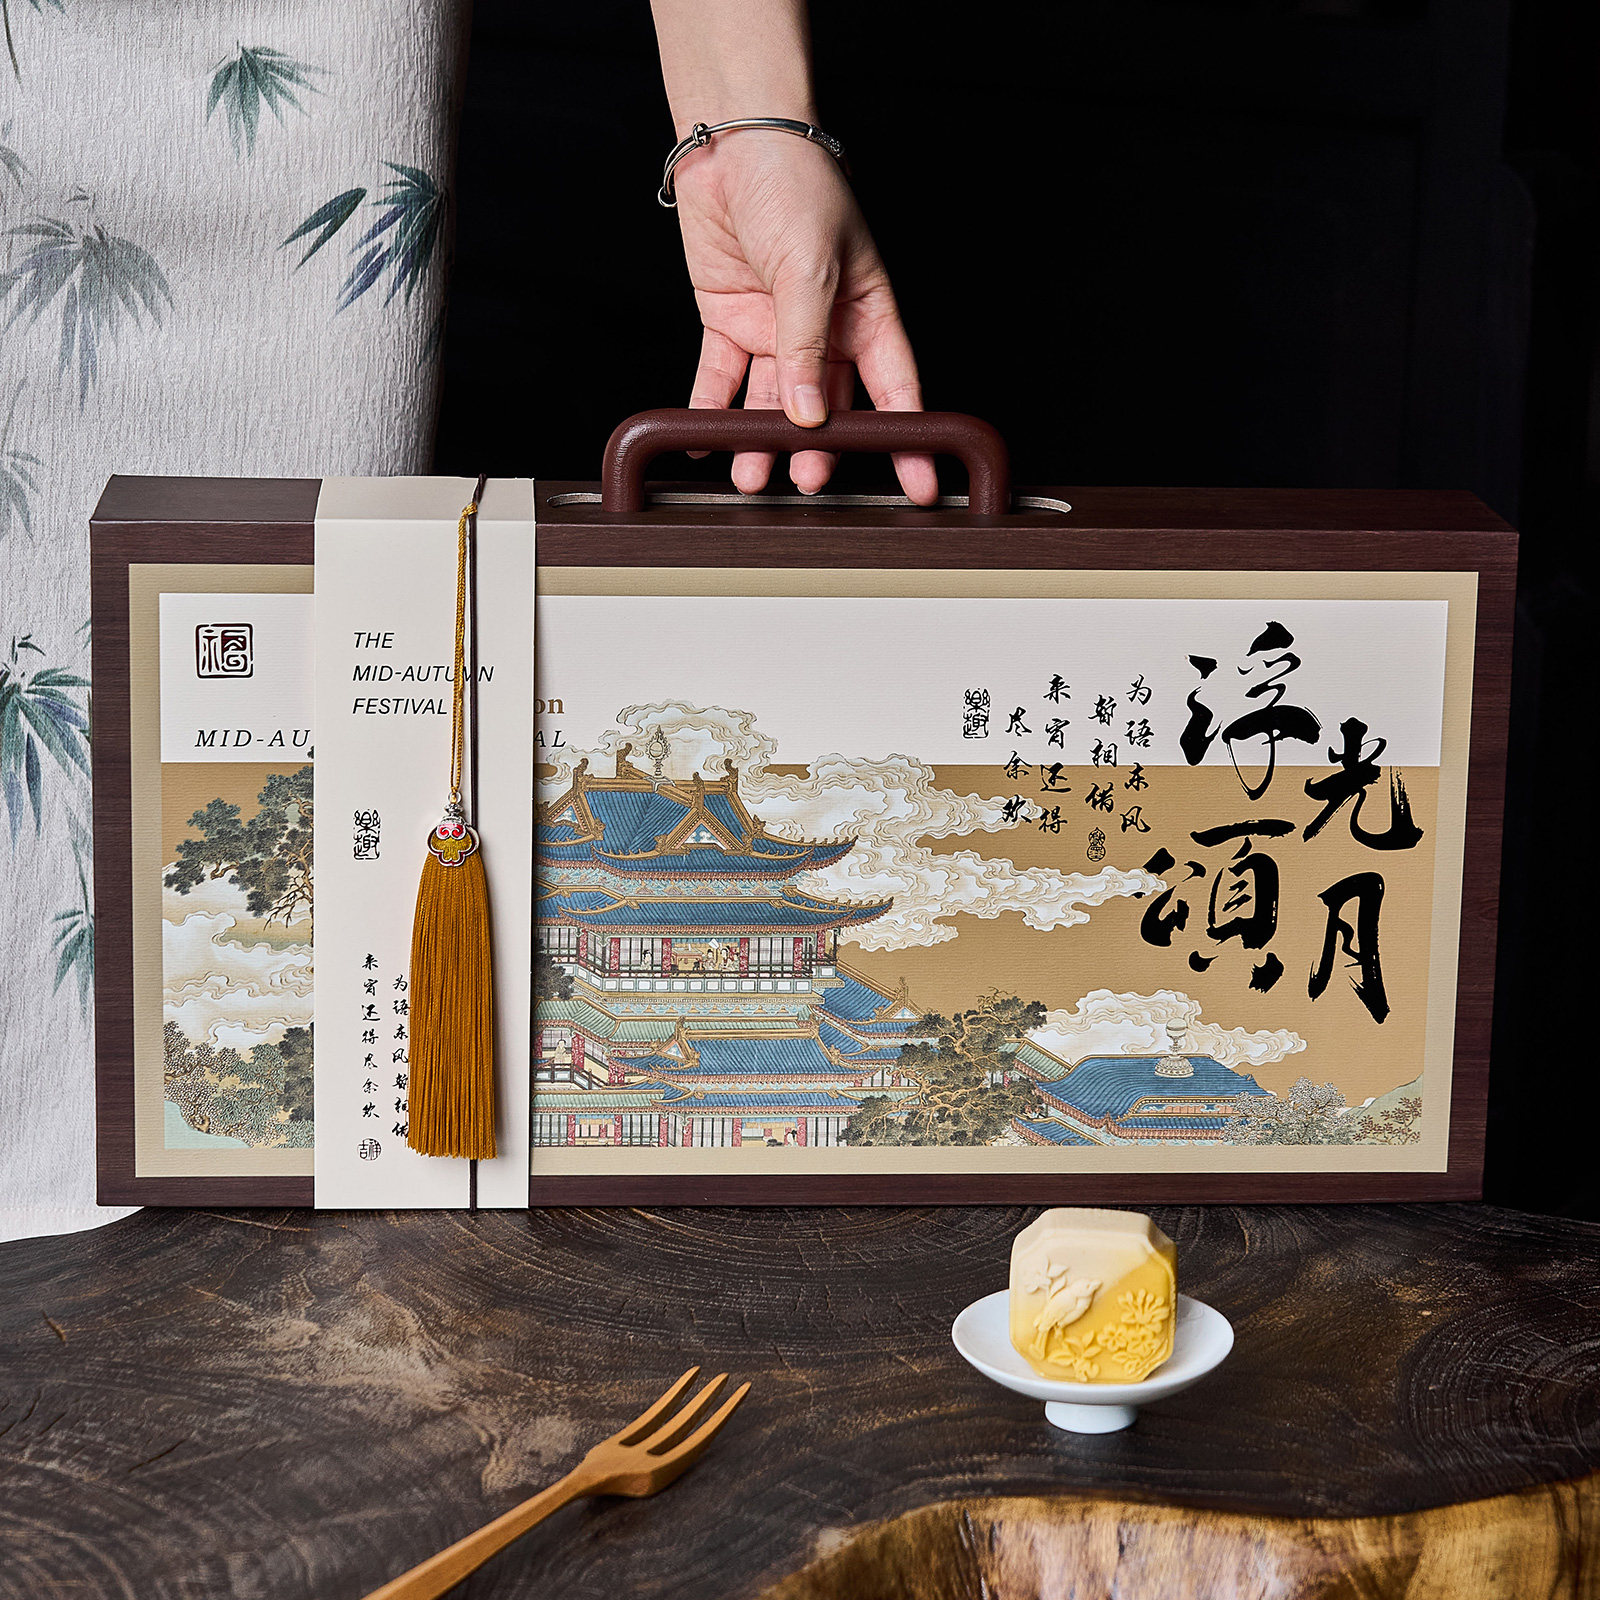 福
MID-AU
AL
on
THE
MID-AUTUMN
FESTIVAL
为语东风暂相借
来宵还得尽余欢
浮光
頌月
为语东风
暂相借
来宵还得
尽余欢